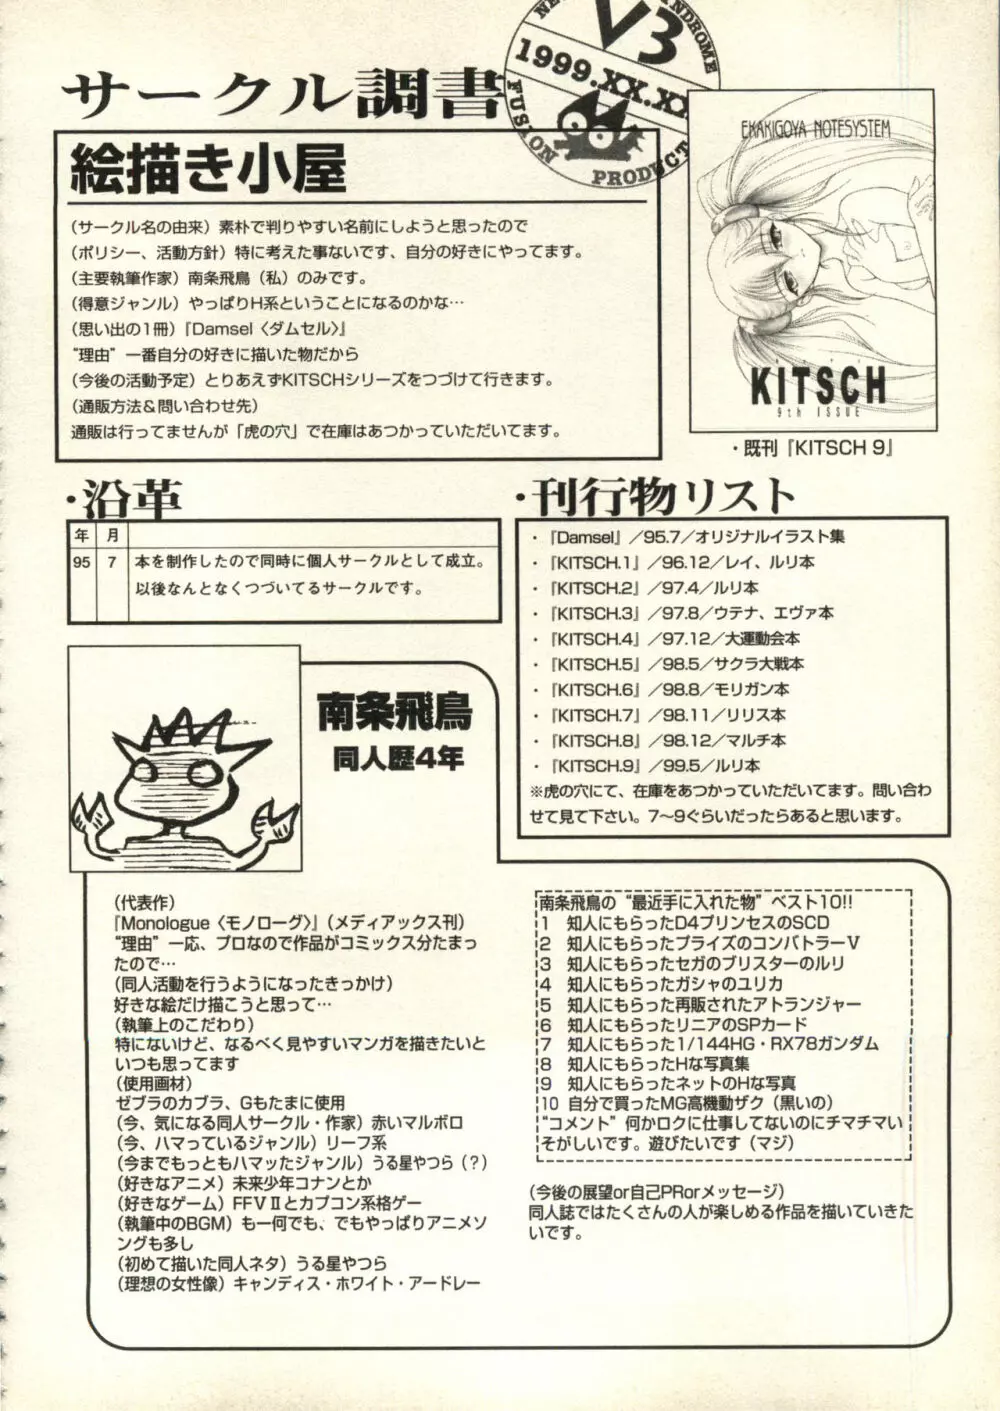 サークル調書
V3
NDROME
1999.XX.X
FUSION
PRODUCT
絵描き小屋
（サークル名の由来）素朴で判りやすい名前にしようと思ったので
（ポリシー、活動方針）特に考えた事ないです、自分の好きにやってます。
（主要執筆作家）南条飛鳥（私）のみです。
（得意ジャンル）やっぱりH系ということになるのかな…
（思い出の1冊）『Damsel〈ダムセル〉』
“理由”一番自分の好きに描いた物だから
（今後の活動予定）とりあえずKITSCHシリーズをつづけて行きます。
（通販方法＆問い合わせ先）
通販は行ってませんが「虎の穴」で在庫はあつかっていただいてます。
EKAKIGOYA NOTESYSTEM
KITSCH
9th ISSUE
・既刊『KITSCH 9』
・沿革
年 月
95 7 本を制作したので同時に個人サークルとして成立。
以後なんとなくつづいてるサークルです。
・刊行物リスト
・『Damsel』／95.7／オリジナルイラスト集
・『KITSCH.1』／96.12／レイ、ルリ本
・『KITSCH.2』／97.4／ルリ本
・『KITSCH.3』／97.8／ウテナ、エヴァ本
・『KITSCH.4』／97.12／大運動会本
・『KITSCH.5』／98.5／サクラ大戦本
・『KITSCH.6』／98.8／モリガン本
・『KITSCH.7』／98.11／リリス本
・『KITSCH.8』／98.12／マルチ本
・『KITSCH.9』／99.5／ルリ本
※虎の穴にて、在庫をあつかっていただいてます。問い合わ
せて見て下さい。7〜9ぐらいだったらあると思います。
南条飛鳥
同人歴4年
（代表作）
『Monologue〈モノローグ〉』（メディアックス刊）
“理由”一応、プロなので作品がコミックス分たまっ
たので…
（同人活動を行うようになったきっかけ）
好きな絵だけ描こうと思って…
（執筆上のこだわり）
特にないけど、なるべく見やすいマンガを描きたいと
いつも思ってます
（使用画材）
ゼブラのカブラ、Gもたまに使用
（今、気になる同人サークル・作家）赤いマルボロ
（今、ハマっているジャンル）リーフ系
（今までもっともハマッたジャンル）うる星やつら（？）
（好きなアニメ）未来少年コナンとか
（好きなゲーム）FFVⅡとカプコン系格ゲー
（執筆中のBGM）も一何でも、でもやっぱりアニメソ
ングも多し
（初めて描いた同人ネタ）うる星やつら
（理想の女性像）キャンディス・ホワイト・アードレー
南条飛鳥の“最近手に入れた物”ベスト10!!
1 知人にもらったD4プリンセスのSCD
2 知人にもらったプライズのコンバトラーV
3 知人にもらったセガのブリスターのルリ
4 知人にもらったガシャのユリカ
5 知人にもらった再販されたアトランジャー
6 知人にもらったリニアのSPカード
7 知人にもらった1/144HG・RX78ガンダム
8 知人にもらったHな写真集
9 知人にもらったネットのHな写真
10 自分で買ったMG高機動ザク（黒いの）
“コメント”何かロクに仕事してないのにチマチマい
そがしいです。遊びたいです（マジ）
（今後の展望or自己PRorメッセージ）
同人誌ではたくさんの人が楽しめる作品を描いていきた
いです。